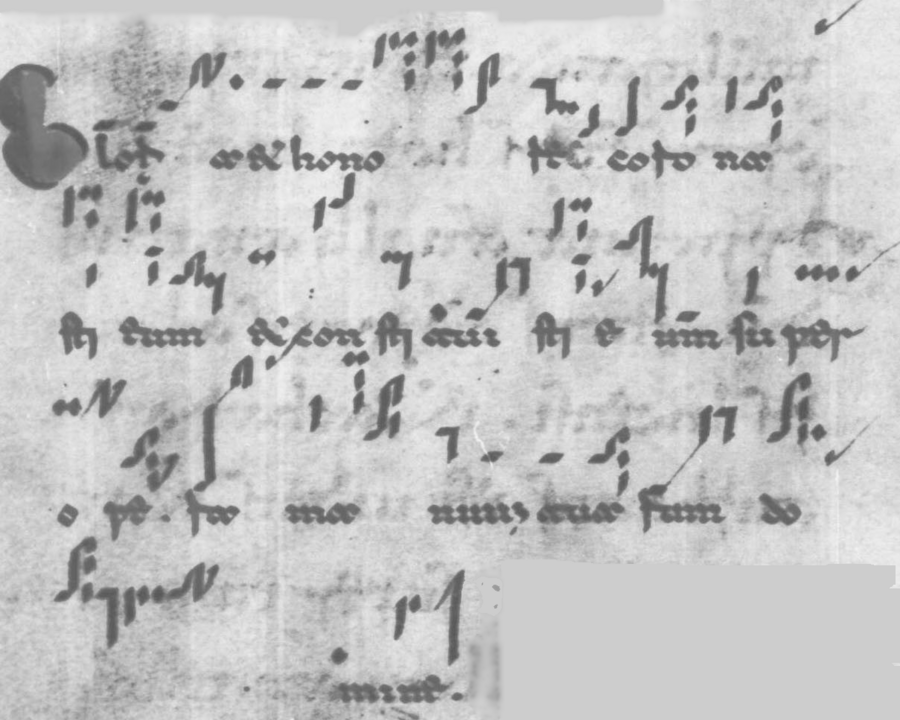 Glori a & hono re coro na
sti eum & con sti tui sti e um su per
o pe. ra ma nuum tua rum do
mine.